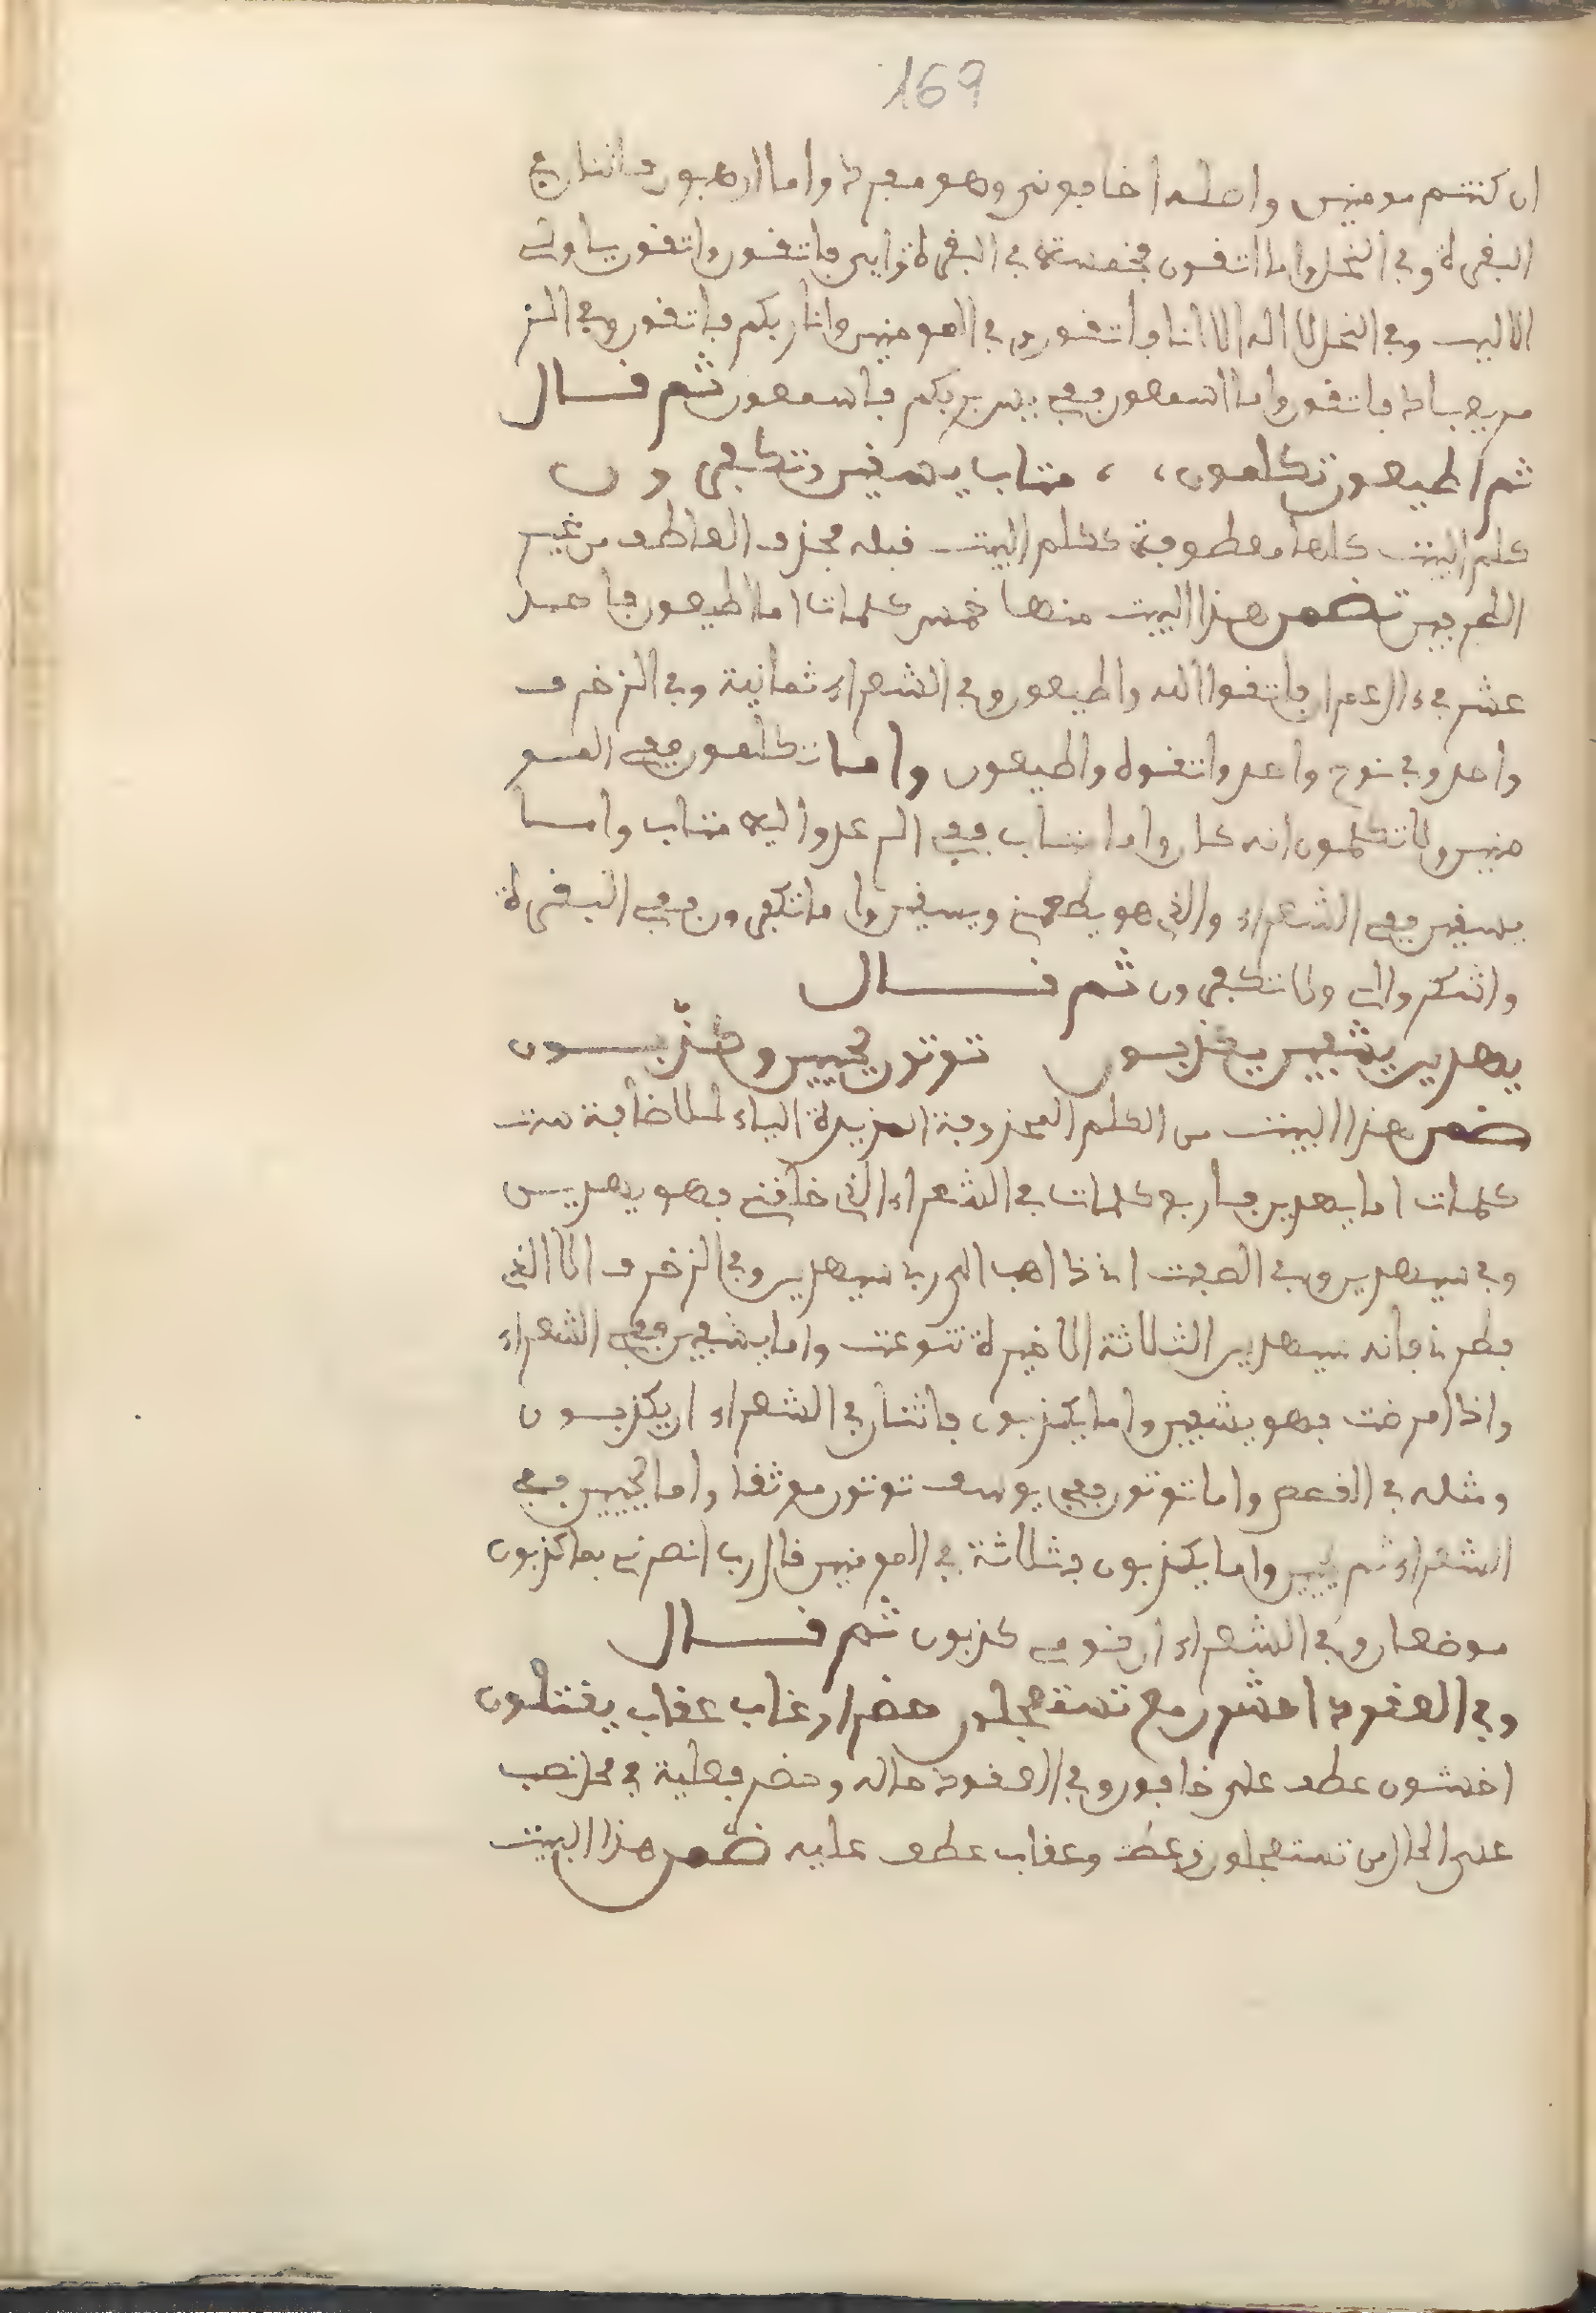 169
ان كنتم مومنين واصله اخافوني وهو مفرد واما ارهبون فاثنان في
البقرة وفي النحل واما اتقون فخمسة في البقرة واين فاتقون واتقون ياولي
الالبب وفي النحل لا اله الا انا فاتقون وفي المومنين وانا ربكم فاتقون وفي الز
مر يعباد فاتقون واما اسمعون ففي يس بربكم فاسمعون ثم قال
ثم اطيعون تكلمون ، ، متاب يسقين تكفرون
كلم البيت كلها معطوفة ككلم البيت قبله محذف العاطف من غير
الطرفين تضمن هذا البيت منها خمس كلمات اما اطيعون فاحد
عشر في ءال عمران فاتقوا الله واطيعون وفي الشعراء ثمانية وفي الزخرف
واحد وفي نوح واحد واتقوه واطيعون واما تكلمون ففي المو
منين ولا تكلمون انه كان واما متاب ففي الرعد واليه متاب واما
يسقين ففي الشعراء والذي هو يطعمني ويسقين واما تكفرون ففي البقرة
واشكروا لي ولا تكفرون ثم قال
يهدين يشفين يكذبون توتون يحيين وكذبون
ضمن هذا البيت من الكلم المحذوفة المزيدة الياء للاضافة ست
كلمات اما يهدين فاربع كلمات في الشعراء الذي خلقني فهو يهدين
وفي سيهدين وفي الصفت اني ذاهب الى ربي سيهدين وفي الزخرف الا الذي
فطرني فانه سيهدين الثلاثة الاخيرة تنوعت واما يشفين ففي الشعراء
واذا مرضت فهو يشفين واما يكذبون فاثنان في الشعراء ان يكذبون
ومثله في القصص واما توتون ففي يوسف توتون موثقا واما يحيين ففي
الشعراء ثم يحيين واما يكذبون فثلاثة في المومنين قال رب انصرني بما كذبون
موضعان وفي الشعراء ان قومي كذبون ثم قال
وفي العقود اخشون مع تستعجلون حضر او غاب عقاب يقتلون
اخشون عطف على خافون وفي العقود حاله وحضر فعلية في محل نصب
على الحال من تستعجلون وعقاب عطف عليه ضمن هذا البيت